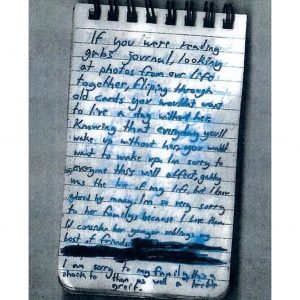 If you were reading
gabs journal, looking
at photos from our life
together, fliping through
old cards you wouldnt want
to live a day without her
Knowing that everyday you'll
wake up without her, you wouldnt
want to wake up. Im sorry to
everyone this will affect, gabby
was the love of my life, but I know
adored by many. Im so very sorry
to her family because I love them
I'd consider her younger siblings my
best of friends
I am sorry to my family, this is a
shock to them as well a terrible
greif.